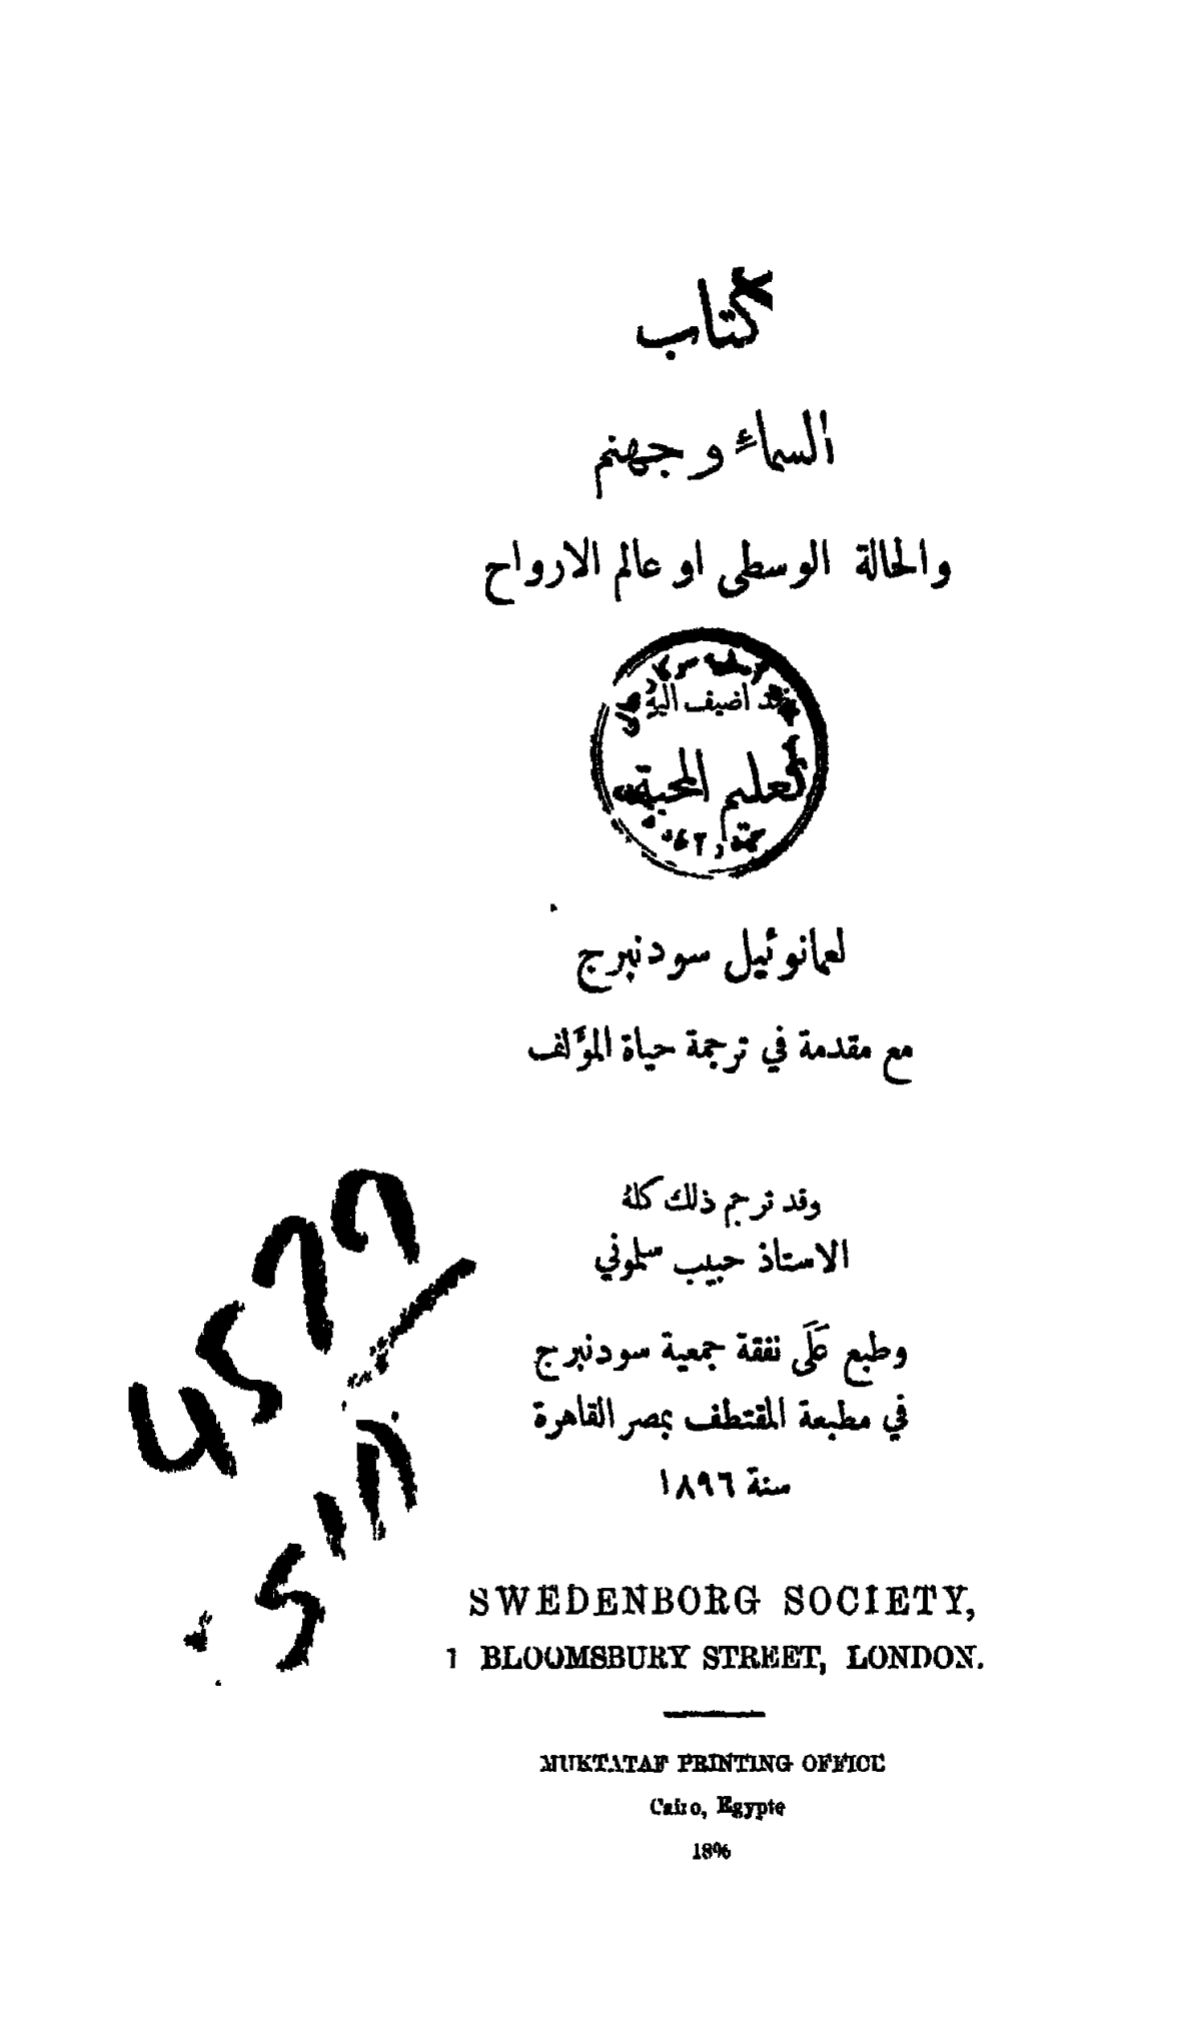 كتاب
السماء وجهنم
والحالة الوسطى او عالم الارواح
قد اضيف اليهِ
تعليم المحبة
لعمانوئيل سودنبرج
مع مقدمة في ترجمة حياة المؤَلف
وقد ترجم ذلك كلهُ
الاستاذ حبيب سلموني
وطبع عَلَى نفقة جمعية سودنبرج
في مطبعة المقتطف بمصر القاهرة
سنة ١٨٩٦
SWEDENBORG SOCIETY,
1 BLOOMSBURY STREET, LONDON.
MUKTATAF PRINTING OFFICE
Cairo, Egypte
1896